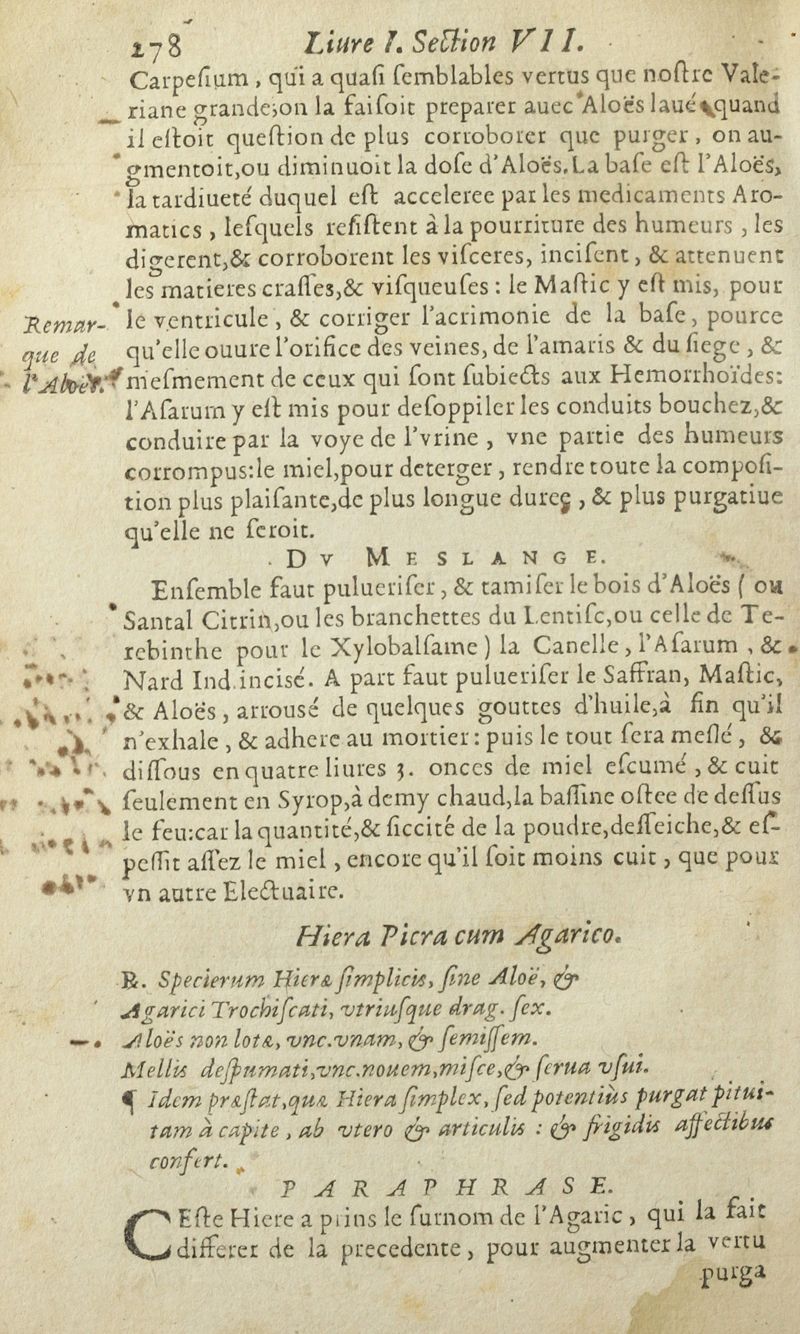 278 Liure I. Section VII.
Carpesium, qui a quasi semblables vertus que nostre Vale-
riane grande;on la faisoit preparer auec Aloës laué,quand
il estoit question de plus corroborer que purger, on au-
gmentoit,ou diminuoit la dose d'Aloës.La base est l'Aloës,
la tardiueté duquel est acceleree par les medicaments Aro-
matics, lesquels resistent à la pourriture des humeurs, les
digerent,& corroborent les visceres, incisent, & attenuent
les matieres crasses,& visqueuses : le Mastic y est mis, pour
le ventricule, & corriger l'acrimonie de la base, pource
qu'elle ouure l'orifice des veines, de l'amaris & du siege, &
mesmement de ceux qui sont subiects aux Hemorrhoïdes:
l'Asarum y est mis pour desoppiler les conduits bouchez,&
conduire par la voye de l'vrine, vne partie des humeurs
corrompus:le miel,pour deterger, rendre toute la composi-
tion plus plaisante,de plus longue duree, & plus purgatiue
qu'elle ne seroit.
Remar-
que de
l'Aloës.
DV MESLANGE.
Ensemble faut puluerifer, & tamiser le bois d'Aloës ( ou
Santal Citrin,ou les branchettes du Lentisc,ou celle de Te-
rebinthe pour le Xylobalsame ) la Canelle, l'Asarum, &
Nard Ind.incisé. A part faut pulueriser le Saffran, Mastic,
& Aloës, arrousé de quelques gouttes d'huile,à fin qu'il
n'exhale, & adhere au mortier : puis le tout sera meslé, &
dissous en quatre liures 3. onces de miel escumé, & cuit
seulement en Syrop,à demy chaud,la bassine ostee de dessus
le feu:car la quantité,& siccité de la poudre,desseiche,& es-
pessit assez le miel, encore qu'il soit moins cuit, que pour
vn autre Electuaire.
Hiera Picra cum Agarico.
℞. Specierum Hieræ simplicis, sine Aloë, &
Agarici Trochiscati, vtriusque drag. sex.
Aloës non lotæ, vnc.vnam, & semissem.
Mellis despumati,vnc.nouem,misce,& serua vsui.
¶ Idem præstat,quæ Hiera simplex, sed potentiùs purgat pitui-
tam à capite, ab vtero & articulis : & frigidis affectibus
confert.
PARAPHRASE.
CEste Hiere a prins le surnom de l'Agaric, qui la fait
differer de la precedente, pour augmenter la vertu
purga